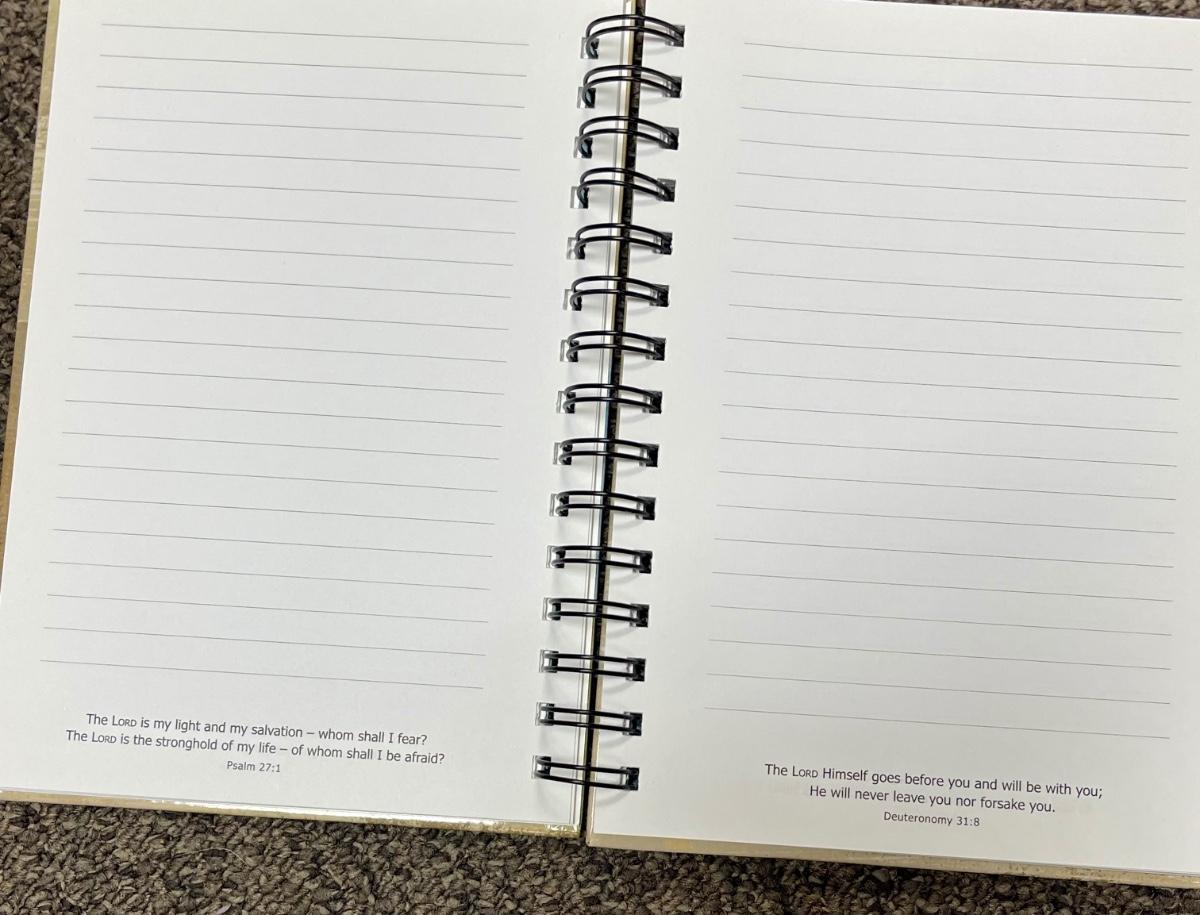 The LORD is my light and my salvation – whom shall I fear?
The LORD is the stronghold of my life – of whom shall I be afraid?
Psalm 27:1
The LORD Himself goes before you and will be with you;
He will never leave you nor forsake you.
Deuteronomy 31:8